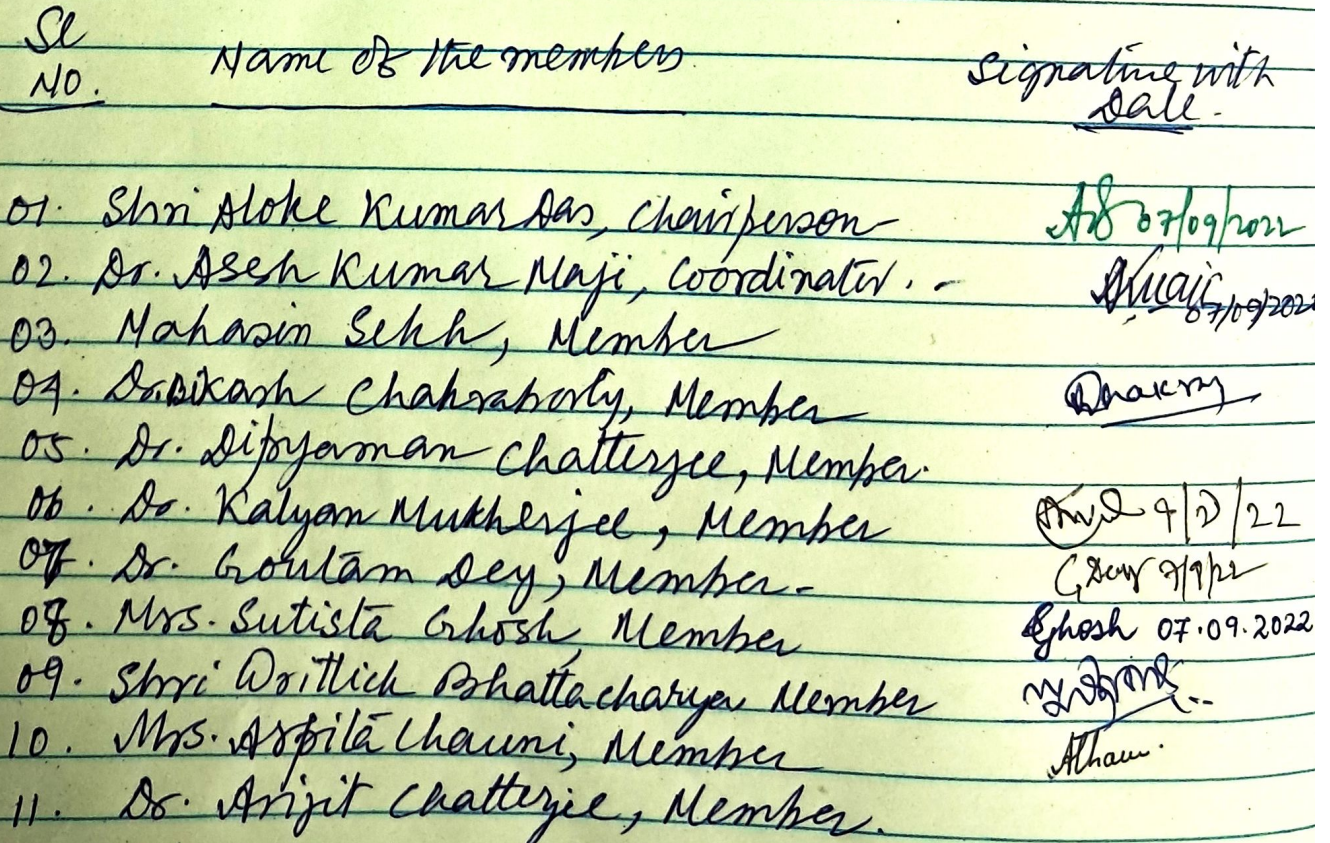 Sl Name of the members Signature with
No. Date.
01. Shri Aloke Kumar Das, Chairperson 07/09/2022
02. Dr. Asesh Kumar Maji, Coordinator. - 07/09/2022
03. Mahasin Sekh, Member
04. Dr. Bikash Chakraborty, Member
05. Dr. Dipyaman Chatterjee, Member.
06. Dr. Kalyan Mukherjee, Member
07. Dr. Goutam Dey, Member- GDey 7/9/22
08. Mrs. Sutista Ghosh, Member Ghosh 07.09.2022
09. Shri Writtick Bhattacharya Member
10. Mrs. Arpita Chauni, Member
11. Dr. Arijit Chatterjee, Member.